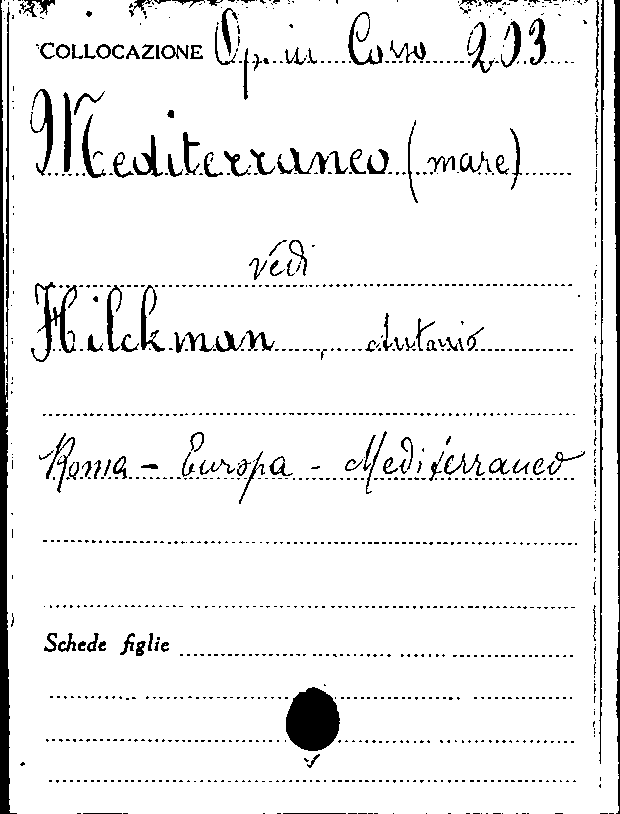 COLLOCAZIONE Op. in Corso 203
Mediterraneo (mare)
vedi
Hilckman, Antonio
Roma - Europa - Mediterraneo
Schede figlie